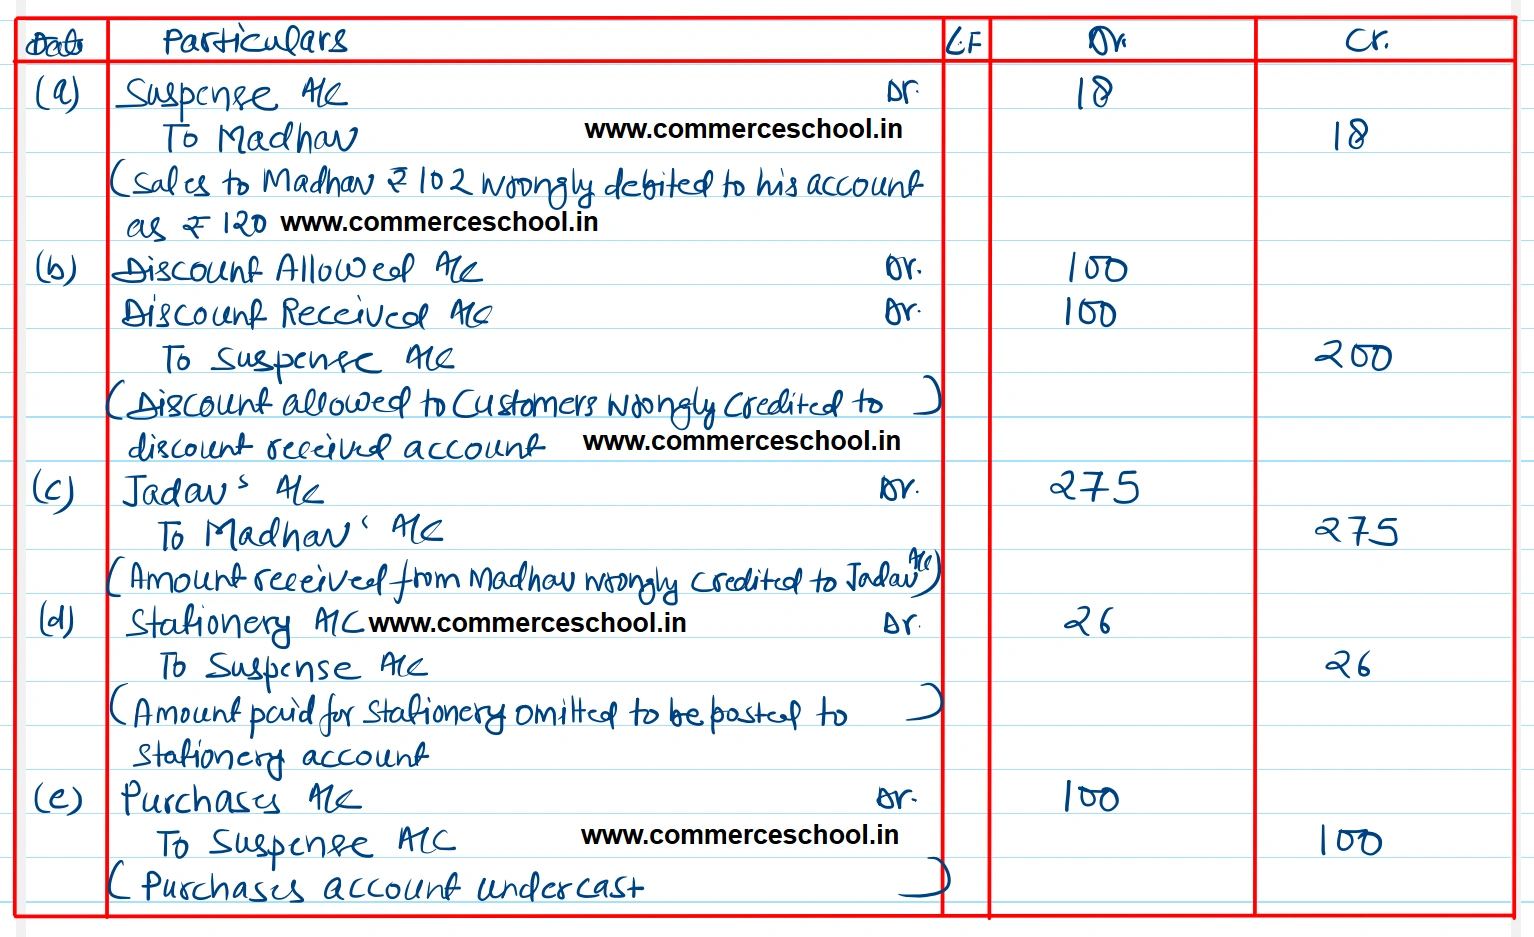 Date Particulars L.F Dr. Cr.
(a) Suspense A/c Dr. 18
To Madhav www.commerceschool.in 18
(Sales to Madhav ₹ 102 wrongly debited to his account
as ₹ 120 www.commerceschool.in
(b) Discount Allowed A/c Dr. 100
Discount Received A/c Dr. 100
To Suspense A/c 200
(Discount allowed to Customers wrongly credited to )
discount received account www.commerceschool.in
(c) Jadav's A/c Dr. 275
To Madhav' A/c 275
(Amount received from Madhav wrongly credited to Jadav A/c)
(d) Stationery A/C www.commerceschool.in Dr. 26
To Suspense A/c 26
(Amount paid for stationery omitted to be posted to )
stationery account
(e) Purchases A/c Dr. 100
To Suspense A/C www.commerceschool.in 100
(Purchases account undercast )